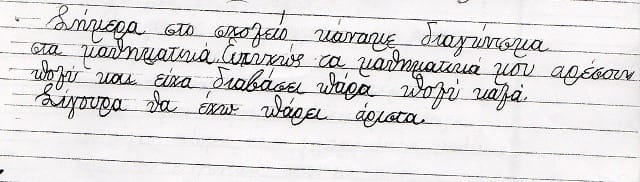 Σήμερα στο σχολείο κάναμε διαγώνισμα
στα μαθηματικά. Ευτυχώς τα μαθηματικά μου αρέσουν
πολύ και είχα διαβάσει πάρα πολύ καλά.
Σίγουρα θα έχω πάρει άριστα.